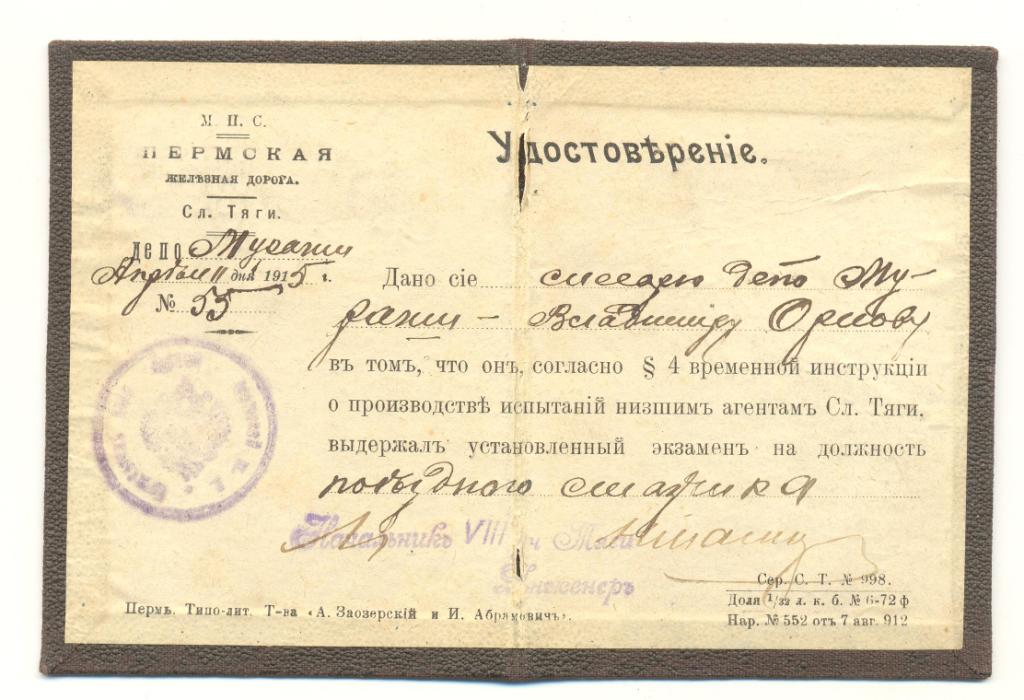 М. П. С.
ПЕРМСКАЯ
ЖЕЛѢЗНАЯ ДОРОГА.
Сл. Тяги.
депо
дня 1915 г.
№ 55
Удостовѣреніе.
Дано сіе слесарю депо
Владиміру Орлову
въ томъ, что онъ, согласно § 4 временной инструкціи
о производствѣ испытаній низшимъ агентамъ Сл. Тяги,
выдержалъ установленный экзаменъ на должность
поѣзднаго смазчика
Начальникъ VIII уч Тяги
Инженеръ
Сер. С. Т. № 998.
Доли 1/32 л. к. б. № 6-72 ф
Нар. № 552 отъ 7 авг. 912
Пермь. Типо-лит. Т-ва «А. Заозерскій и И. Абрамовичъ».